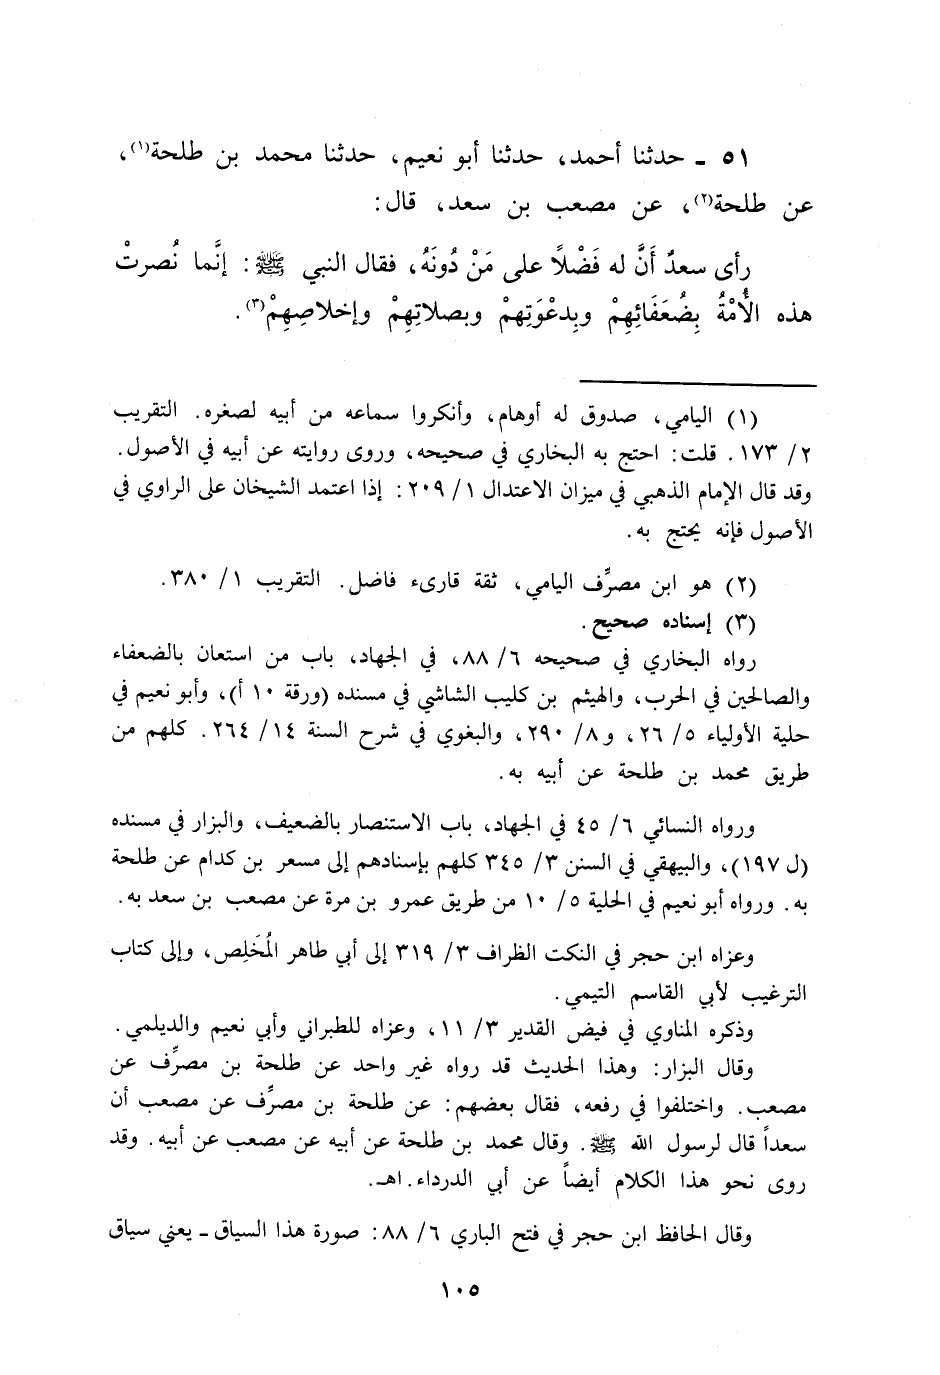 ٥١ ـ حدثنا أحمد، حدثنا أبو نعيم، حدثنا محمد بن طلحة(١)،
عن طلحة(٢)، عن مصعب بن سعد، قال:
رأى سعدٌ أَنَّ له فَضْلاً على مَنْ دُونَهُ، فقال النبي ﷺ: إنَّما نُصرتْ
هذه الأُمْةُ بِضُعَفَائِهِمْ وبِدعْوَتِهمْ وبصلاتِهِمْ وإخلاصِهِمْ(٣).
(١) اليامي، صدوق له أوهام، وأنكروا سماعه من أبيه لصغره. التقريب
٢/ ١٧٣. قلت: احتج به البخاري في صحيحه، وروى روايته عن أبيه في الأصول.
وقد قال الإمام الذهبي في ميزان الاعتدال ١/ ٢٠٩: إذا اعتمد الشيخان على الراوي في
الأصول فإنه يحتج به.
(٢) هو ابن مصرِّف اليامي، ثقة قارىء فاضل. التقريب ١/ ٣٨٠.
(٣) إسناده صحيح.
رواه البخاري في صحيحه ٦/ ٨٨، في الجهاد، باب من استعان بالضعفاء
والصالحين في الحرب، والهيثم بن كليب الشاشي في مسنده (ورقة ١٠ أ)، وأبو نعيم في
حلية الأولياء ٥/ ٢٦، و٨/ ٢٩٠، والبغوي في شرح السنة ١٤/ ٢٦٤. كلهم من
طريق محمد بن طلحة عن أبيه به.
ورواه النسائي ٦/ ٤٥ في الجهاد، باب الاستنصار بالضعيف، والبزار في مسنده
(ل ١٩٧)، والبيهقي في السنن ٣/ ٣٤٥ كلهم بإسنادهم إلى مسعر بن كدام عن طلحة
به. ورواه أبو نعيم في الحلية ٥/ ١٠ من طريق عمرو بن مرة عن مصعب بن سعد به.
وعزاه ابن حجر في النكت الظراف ٣/ ٣١٩ إلى أبي طاهر المُخَلِص، وإلى كتاب
الترغيب لأبي القاسم التيمي.
وذكره المناوي في فيض القدير ٣/ ١١، وعزاه للطبراني وأبي نعيم والديلمي.
وقال البزار: وهذا الحديث قد رواه غير واحد عن طلحة بن مصرِّف عن
مصعب. واختلفوا في رفعه، فقال بعضهم: عن طلحة بن مصرِّف عن مصعب أن
سعداً قال لرسول الله ﷺ. وقال محمد بن طلحة عن أبيه عن مصعب عن أبيه. وقد
روى نحو هذا الكلام أيضاً عن أبي الدرداء. اهـ.
وقال الحافظ ابن حجر في فتح الباري ٦/ ٨٨: صورة هذا السياق ـ يعني سياق
١٠٥